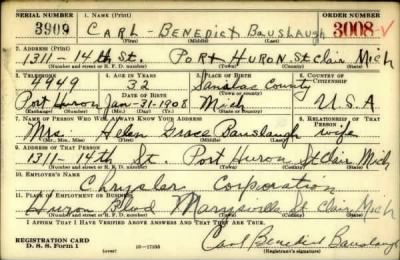 SERIAL NUMBER 1. NAME (Print) ORDER NUMBER
3909 CARL - BENEDICT Bauslaugh 3008-V
(First) (Middle) (Last)
2. ADDRESS (Print)
1311 - 14th St. PORT HURON. St Clair Mich
(Number and street or R. F. D. number) (Town) (County) (State)
3. TELEPHONE 4. AGE IN YEARS 5. PLACE OF BIRTH 6. COUNTRY OF CITIZENSHIP
4949 32 Sanilac County
DATE OF BIRTH (Town or county)
Port Huron Jan-31-1908 Mich U.S.A
(Exchange) (Mo.) (Day) (Yr.) (State or country)
7. NAME OF PERSON WHO WILL ALWAYS KNOW YOUR ADDRESS 8. RELATIONSHIP OF THAT PERSON
Mrs. Helen Grace Bauslaugh wife
(Mr., Mrs., Miss) (First) (Middle) (Last)
9. ADDRESS OF THAT PERSON
1311 - 14th St. Port Huron St Clair Mich
(Number and street or R. F. D. number) (Town) (County) (State)
10. EMPLOYER'S NAME
Chrysler Corporation
11. PLACE OF EMPLOYMENT OR BUSINESS
Huron Blvd Marysville St Clair, Mich
(Number and street or R. F. D. number) (Town) (County) (State)
I AFFIRM THAT I HAVE VERIFIED ABOVE ANSWERS AND THAT THEY ARE TRUE.
REGISTRATION CARD
D. S. S. Form 1 (over) 16-17105 Carl Benedict Bauslaugh
(Registrant's signature)